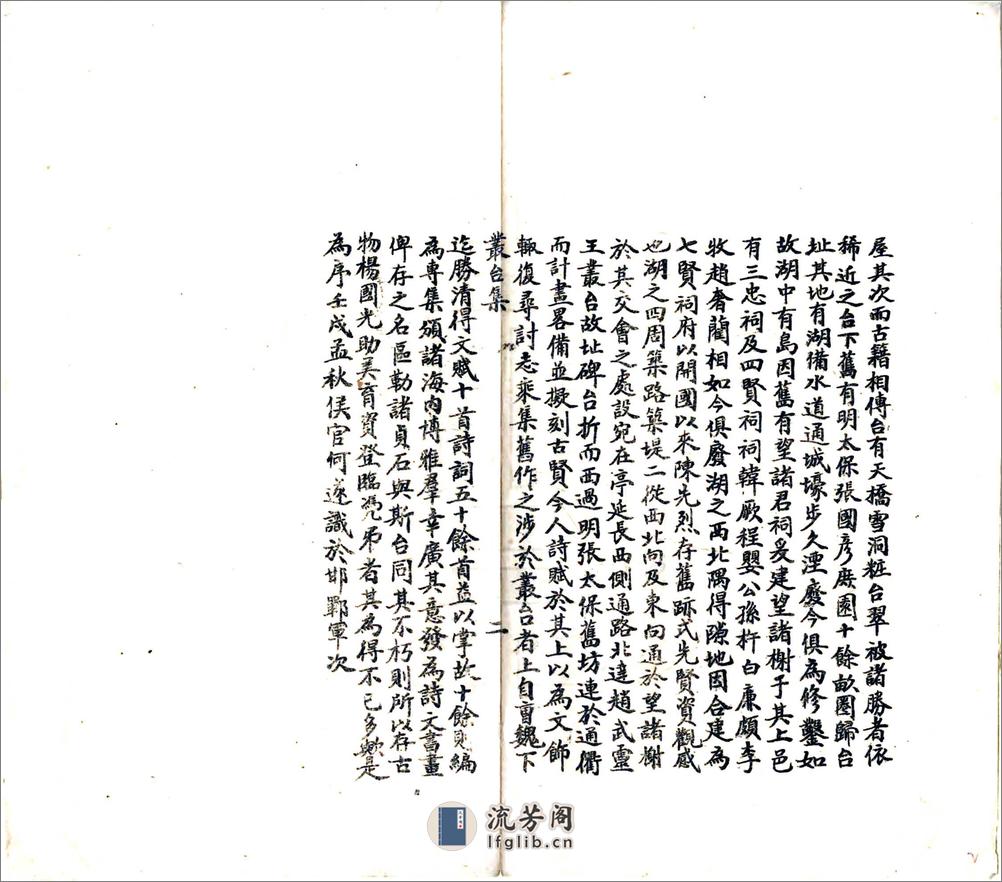 屋其次而古籍相傳台有天橋雪洞粧台翠被諸勝者依
稀近之台下舊有明太保張國彥廢園十餘畝圈歸台
址其地有湖備水道通城壕步久湮廢今俱為修鑿如
故湖中有島因舊有望諸君祠爰建望諸榭于其上邑
有三忠祠及四賢祠祠韓厥程嬰公孫杵臼廉頗李
牧趙奢藺相如今俱廢湖之西北隅得隙地因合建為
七賢祠府以開國以來陳先烈存舊跡式先賢資觀感
也湖之四周築路築堤二從西北向及東向通於望諸榭
於其交會之處設宛在亭延長西側通路北達趙武靈
王叢台故址碑台折而西過明張太保舊坊連於通衢
而計畫畧備並擬刻古賢今人詩賦於其上以為文飾
輙復尋討志乘集舊作之涉於叢台者上自曹魏下
叢台集
二
迄勝清得文賦十首詩詞五十餘首益以掌故十餘則編
為專集頒諸海內博雅羣幸廣其意發為詩文書畫
俾存之名區勒諸貞石與斯台同其不朽則所以存古
物楊國光助美育資登臨凭弔者其為得不已多歟是
為序壬戌孟秋侯官何遂識於邯鄲軍次
流芳阁
lfglib.cn